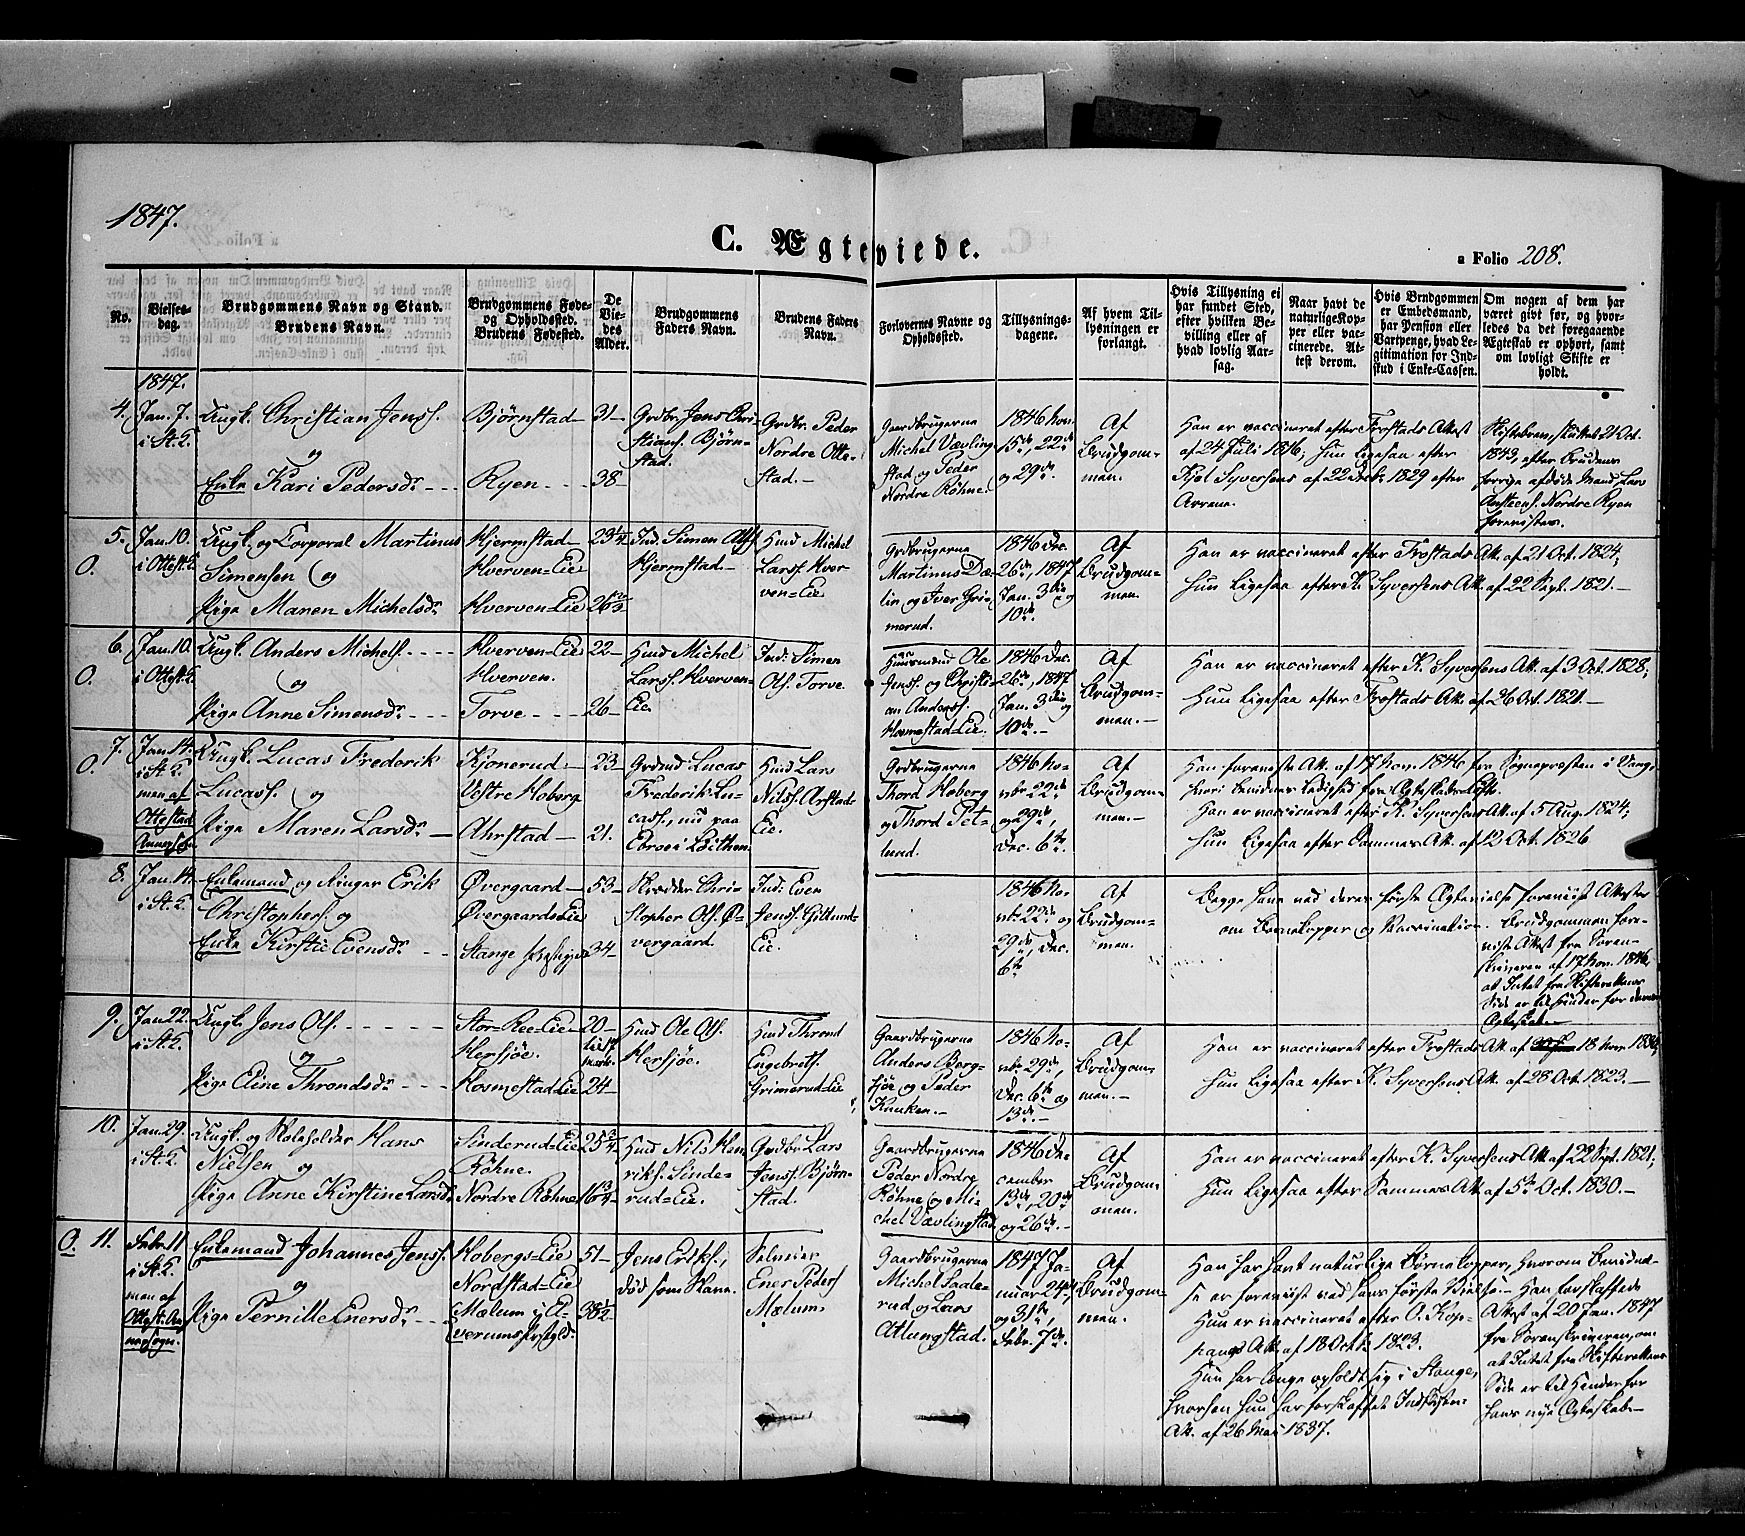 1847.
C. Ægteviede.
a Folio 208.
No.
Vielses-
dag.
Brudgommens Navn og Stand.
Brudens Navn.
Brudgommens Føde-
og Opholdsted.
Brudens Fødested.
De
Vie-
des
Alder.
Brudgommens
Faders Navn.
Brudens Faders
Navn.
Forlovernes Navne og
Opholdssted.
Tillysnings-
dagene.
Af hvem Til-
lysningen er
forlangt.
Hvis Tillysning ei
har fundet Sted,
efter hvilken Be-
villing eller af
hvad lovlig Aar-
sag.
Naar havt de
naturlige Kop-
per eller vac-
cinerede. At-
test derom.
Hvis Brudgommen
er Embedsmand,
har Pension eller
Vartpenge, hvad Le-
gitimation for Ind-
skud i Enke-Cassen.
Om nogen af dem har
været gift før, og hvor-
ledes da det foregaaende
Ægteskab er ophørt, samt
om lovligt Skifte er
holdt.
1847.
4. Jan. 7.
i St. K.
Ungk. Christian Jenss.
og
Enke Kari Pedersdr
Bjørnstad
Ryen
31
38
Grdbr. Jens Chri-
stians. Bjørn-
stad.
Grdbr. Peder
Nordre Otte-
stad.
Gaardbrugerne
Michel Vævling-
stad og Peder
Nordre Röhne.
1846 Nov.
15de, 22de
og 29de.
Af
Brudgom-
men.
Han er vaccineret efter Frostads Attest
af 24 Juli 1816; Hun ligesaa efter
Kjel Syversens af 22 Decb. 1829 efter
Skiftebrev, sluttet 21 Oct.
1843, efter Brudens
forrige afdøde Mand, Lars
Nordre Ryen
forevistes.
5. Jan. 10.
i Ottest. K.
O.
Ungk. og Corporal Martinus
Simensen og
Pige Maren Michelsdr
Hjermstad
Hverven-Eie
Hverven-Eie
23¼
Ind. Simen Olss.
Hjermstad.
Husd Michel
Larss. Hver-
ven-Eie
Grdbrugerne
Martinus Dæ-
lin og Iver Gri-
merud.
1846 Dec.
26de, 1847
Jan. 3die og
10de.
Af
Brudgom-
men.
Han er vaccineret efter Frostads Att. af 21 Oct. 1824;
Hun ligesaa efter K. Syversens Att. af 22 Sept. 1821.
6. Jan. 10.
i Ottest. K.
O.
Ungk. Anders Michelss.
og
Pige Anne Simensdr
Hverven-Eie
Hverven.
Torve
22
26
Husd Michel
Larss. Hverven-
Eie.
Ind. Simen
Ols. Torve.
Huusmænd Ole
Jenss. og Christi-
an Anderss.
Hosmestad-Eie.
1846 Dec.
26de, 1847
Jan. 3die og
10de.
Af
Brudgom-
men.
Han er vaccineret efter K. Syversens Att. af 3 Oct. 1828;
Hun ligesaa efter Frostads Att. af 26 Oct. 1821.
7. Jan. 14.
i St. K.
men af
Ottestad
Annexsogn
O.
Ungk. Lucas Frederik
Lucass. og
Pige Maren Larsdr
Kjonerud.
Vestre Hoberg
Ahrstad
23
21.
Grdmd Lucas
Frederik Lu-
cass., nu paa
i Löithen
Husd Lars
Nilss. Arstad-
Eie.
Grdbrugerne
Thord Hoberg
og Thord Pet-
lund.
1846 No-
vbr 22de
og 29de,
Dec. 6te.
Af
Brudgom-
men.
Han foreviste Att. af 17 Nov. 1846 fra Sognepræsten i Vang,
hvori bevidnes Ledighed fra Ægteskabsløfte.
Han er vaccineret efter K. Syversens Att. af 5 Aug. 1824;
Hun ligesaa efter Sammes Att. af 12 Oct. 1826
8. Jan. 14.
i St. K.
Enkemand og Ringer Erik
Christophers. og
Enke Kirstie Evensdr
Övergaard
Övergaards-Eie
Stange Præstegjeld
53
34
Skrædder Chri-
stopher Ols. Ö-
vergaard.
Ind. Even
Jenss. Gillund-
Eie.
1846 No-
vbr 22de og
29de, Dec.
6te
Af
Brudgom-
men.
Begge have ved deres første Ægtevielse foreviist Attester
om Børnekopper og Vaccination. Brudgommen fore-
viste Attest fra Soren-
skriveren af 17 Nov. 1846,
at Intet fra Skifterettens
Side er til Hinder for dette
Ægteskab.
9. Jan. 22.
i St. K.
Ungk. Jens Ols.
og
Pige Eline Throndsdr
Stor-Ree-Eie
Hersjøe.
Hosmestad-Eie
20
24
Husd Ole Ols.
Hersjøe.
Husd Thrond
Engebrets.
Grimerud-Eie
Gaardbrugerne
Anders Berg-
sjøe og Peder
Knuken.
1846 No-
vbr 29de,
Dec. 6te og
13de.
Af
Brudgom-
men.
Han er vaccineret efter Frostads Att. af 18 Nov. 1830,
Hun ligesaa efter K. Syversens Att. af 28 Oct. 1823.
10. Jan. 29.
i St. K.
Ungk. og Skoleholder Hans
Nielsen og
Pige Anne Kirstine Larsdr
Sinderud-Eie
Röhne.
Nordre Röhne
25¾
16¾
Husd Nils Hen-
riks. Sinde-
rud-Eie.
Grdbr. Lars
Jenss. Bjørn-
stad.
Gaardbrugerne
Peder Nordre
Röhne og Mi-
chel Vævlingstad
1846 De-
cember
13de, 20de
og 26de.
Af
Brudgom-
men.
Han er vaccineret efter K. Syversens Att. af 22 Sept. 1821,
Hun ligesaa efter Sammes Att. af 5te Oct. 1830.
O. 11. Febr. 11
i St. K.
men af
Ottest. An-
nexsogn.
Enkemand Johannes Jenss.
og
Pige Pernille Enersdr
Hobergs-Eie
Nordstad-Eie
Mælum i El-
verums Præstgjld.
51
38½
Jens Eriks.,
død som Slave.
Selveier
Ener Peders
Mælum.
Gaardbrugerne
Michel Saale-
rud og Lars
Atlungstad.
1847 Ja-
nuar 24de
og 31te,
Febr. 7de.
Af
Brudgom-
men.
Han har havt naturlige Børnekopper, hvorom Bevidnel-
se er foreviist ved hans første Vielse.
Hun er vaccineret efter O. Kop-
pangs Att. af 18 Octb. 1823.
Hun har længe opholdt sig i Stange,
hvorsom hun har forskaffet Indflytn.
Att. af 26 Mai 1837.
Han forskaffede
Attest af 20 Jan. 1847
fra Sorenskriveren, om
at Intet fra Skifterettens
Side er til Hinder for
hans nye Ægteskab.